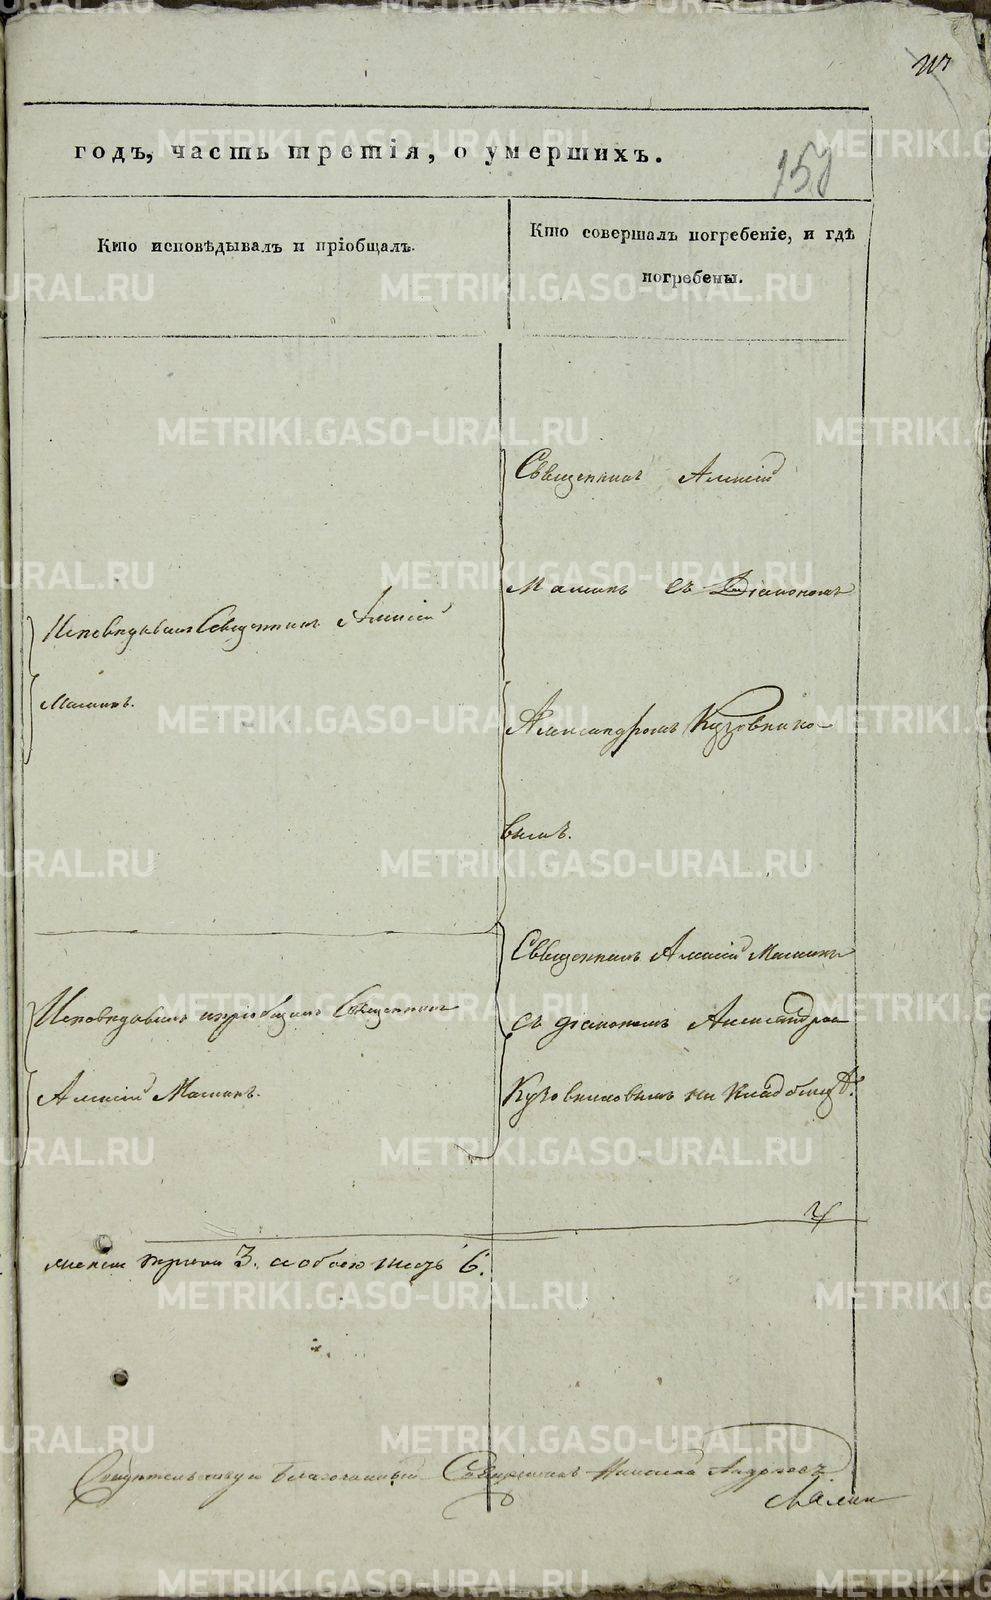 годъ, часть третія, о умершихъ.
151
Кто исповѣдывалъ и пріобщалъ.
Кто совершалъ погребеніе, и гдѣ
погребены.
Священникъ Алексій
Маминъ съ Діакономъ
Александромъ Кузовнико-
вымъ.
Исповѣдывалъ Священникъ Алексій
Маминъ.
Священникъ Алексій Маминъ
съ діакономъ Александром
Кузовниковымъ на кладбищѣ.
Исповѣдывалъ и пріобщалъ Священникъ
Алексій Маминъ.
женска 3. а обоего 6.
Благочинный Священникъ
METRIKI.GASO-URAL.RU